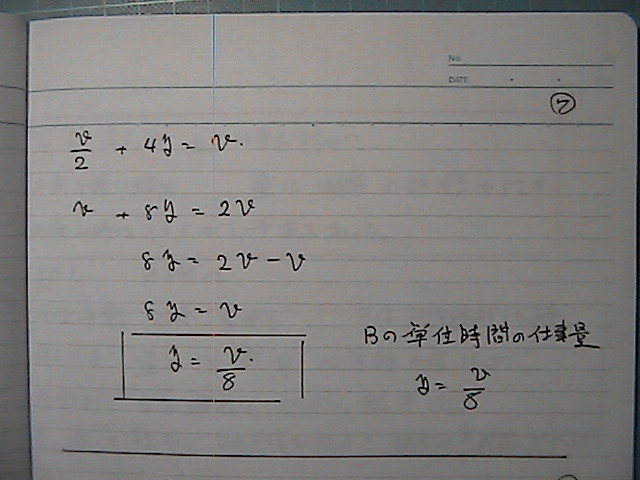 No.
DATE
⑦
v/2 + 4y = v.
v + 8y = 2v
8y = 2v - v
8y = v
y = v/8.
Bの単位時間の仕事量
y = v/8